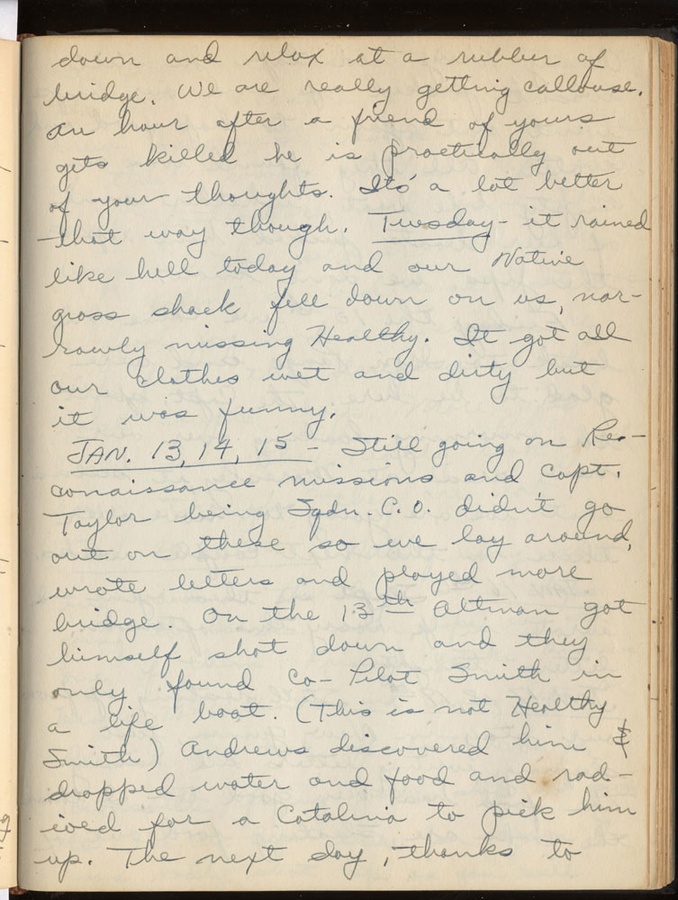 down and relax at a rubber of
bridge. We are really getting callouse.
An hour after a friend of yours
gets killed he is practically out
of your thoughts. Its' a lot better
that way though. Tuesday - it rained
like hell today and our Native
grass shack fell down on us, nar-
rowly missing Healthy. It got all
our clothes wet and dirty but
it was funny.
JAN. 13, 14, 15 - Still going on Re-
conaissance missions and Capt.
Taylor being Sqdn. C.O. didn't go
out on these so we lay around,
wrote letters and played more
bridge. On the 13th Altman got
himself shot down and they
only found Co-Pilot Smith in
a life boat. (This is not Healthy
Smith) Andrews discovered him &
dropped water and food and rad-
ioed for a Catalina to pick him
up. The next day, thanks to